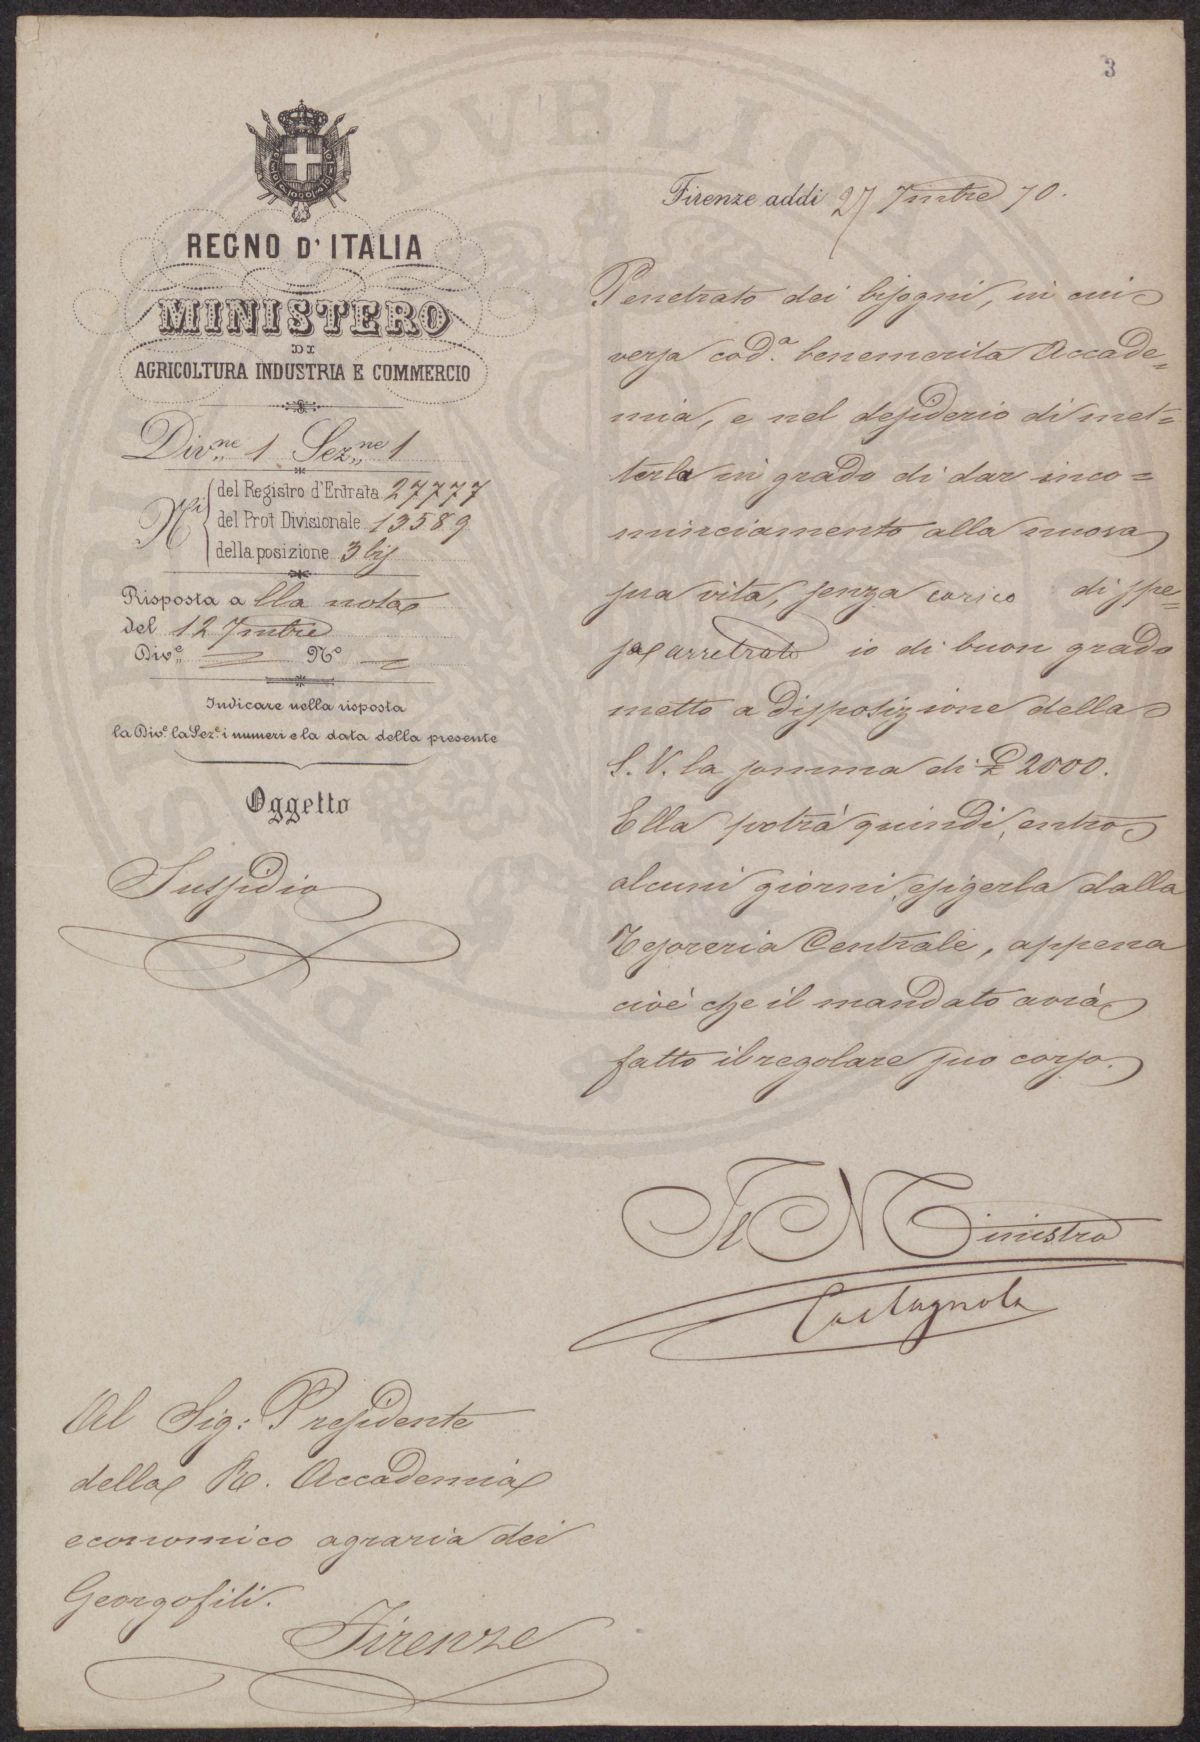 3
REGNO D'ITALIA
MINISTERO
DI
AGRICOLTURA INDUSTRIA E COMMERCIO
Div.ne 1 Sez.ne 1
N.i del Registro d'Entrata 27777
del Prot Divisionale 13589
della posizione 3 bis
Risposta a lla nota
del 12 7mbre
Div.e N.o
Indicare nella risposta
la Div.e la Sez.e i numeri e la data della presente
Oggetto
Sussidio
Firenze addi 27 7mbre 70.
Penetrato dei bisogni, in cui
versa cod.a benemerita Accade=
mia, e nel desiderio di met=
terla in grado di dar inco=
minciamento alla nuova
sua vita, senza carico di spe=
se arretrate io di buon grado
metto a disposizione della
S. V. la somma di £ 2000.
Ella potrà quindi, entro
alcuni giorni, esigerla dalla
Tesoreria Centrale, appena
cioè che il mandato avrà
fatto il regolare suo corso.
Il Ministro
Castagnola
Al Sig: Presidente
della R. Accademia
economico agraria dei
Georgofili.
Firenze